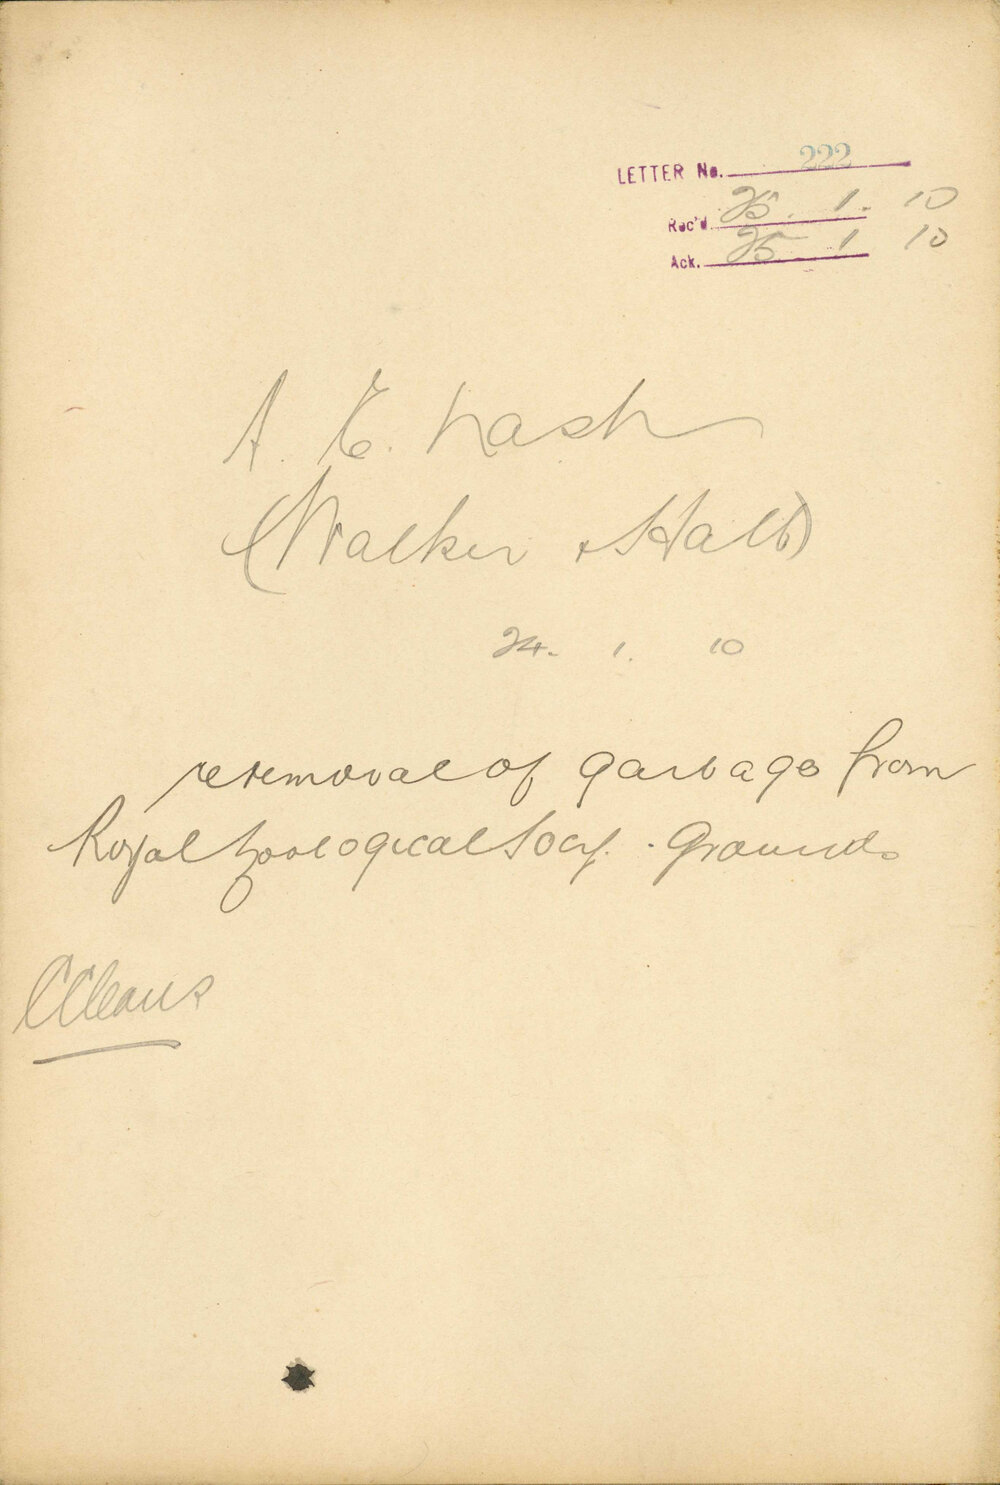 LETTER No. 222
Rec'd. 25. 1. 10
Ack. 25 1 10
A. E. Nash
(Walker & Hall)
24. 1. 10
re removal of garbage from
Royal Zoological Socy. Grounds